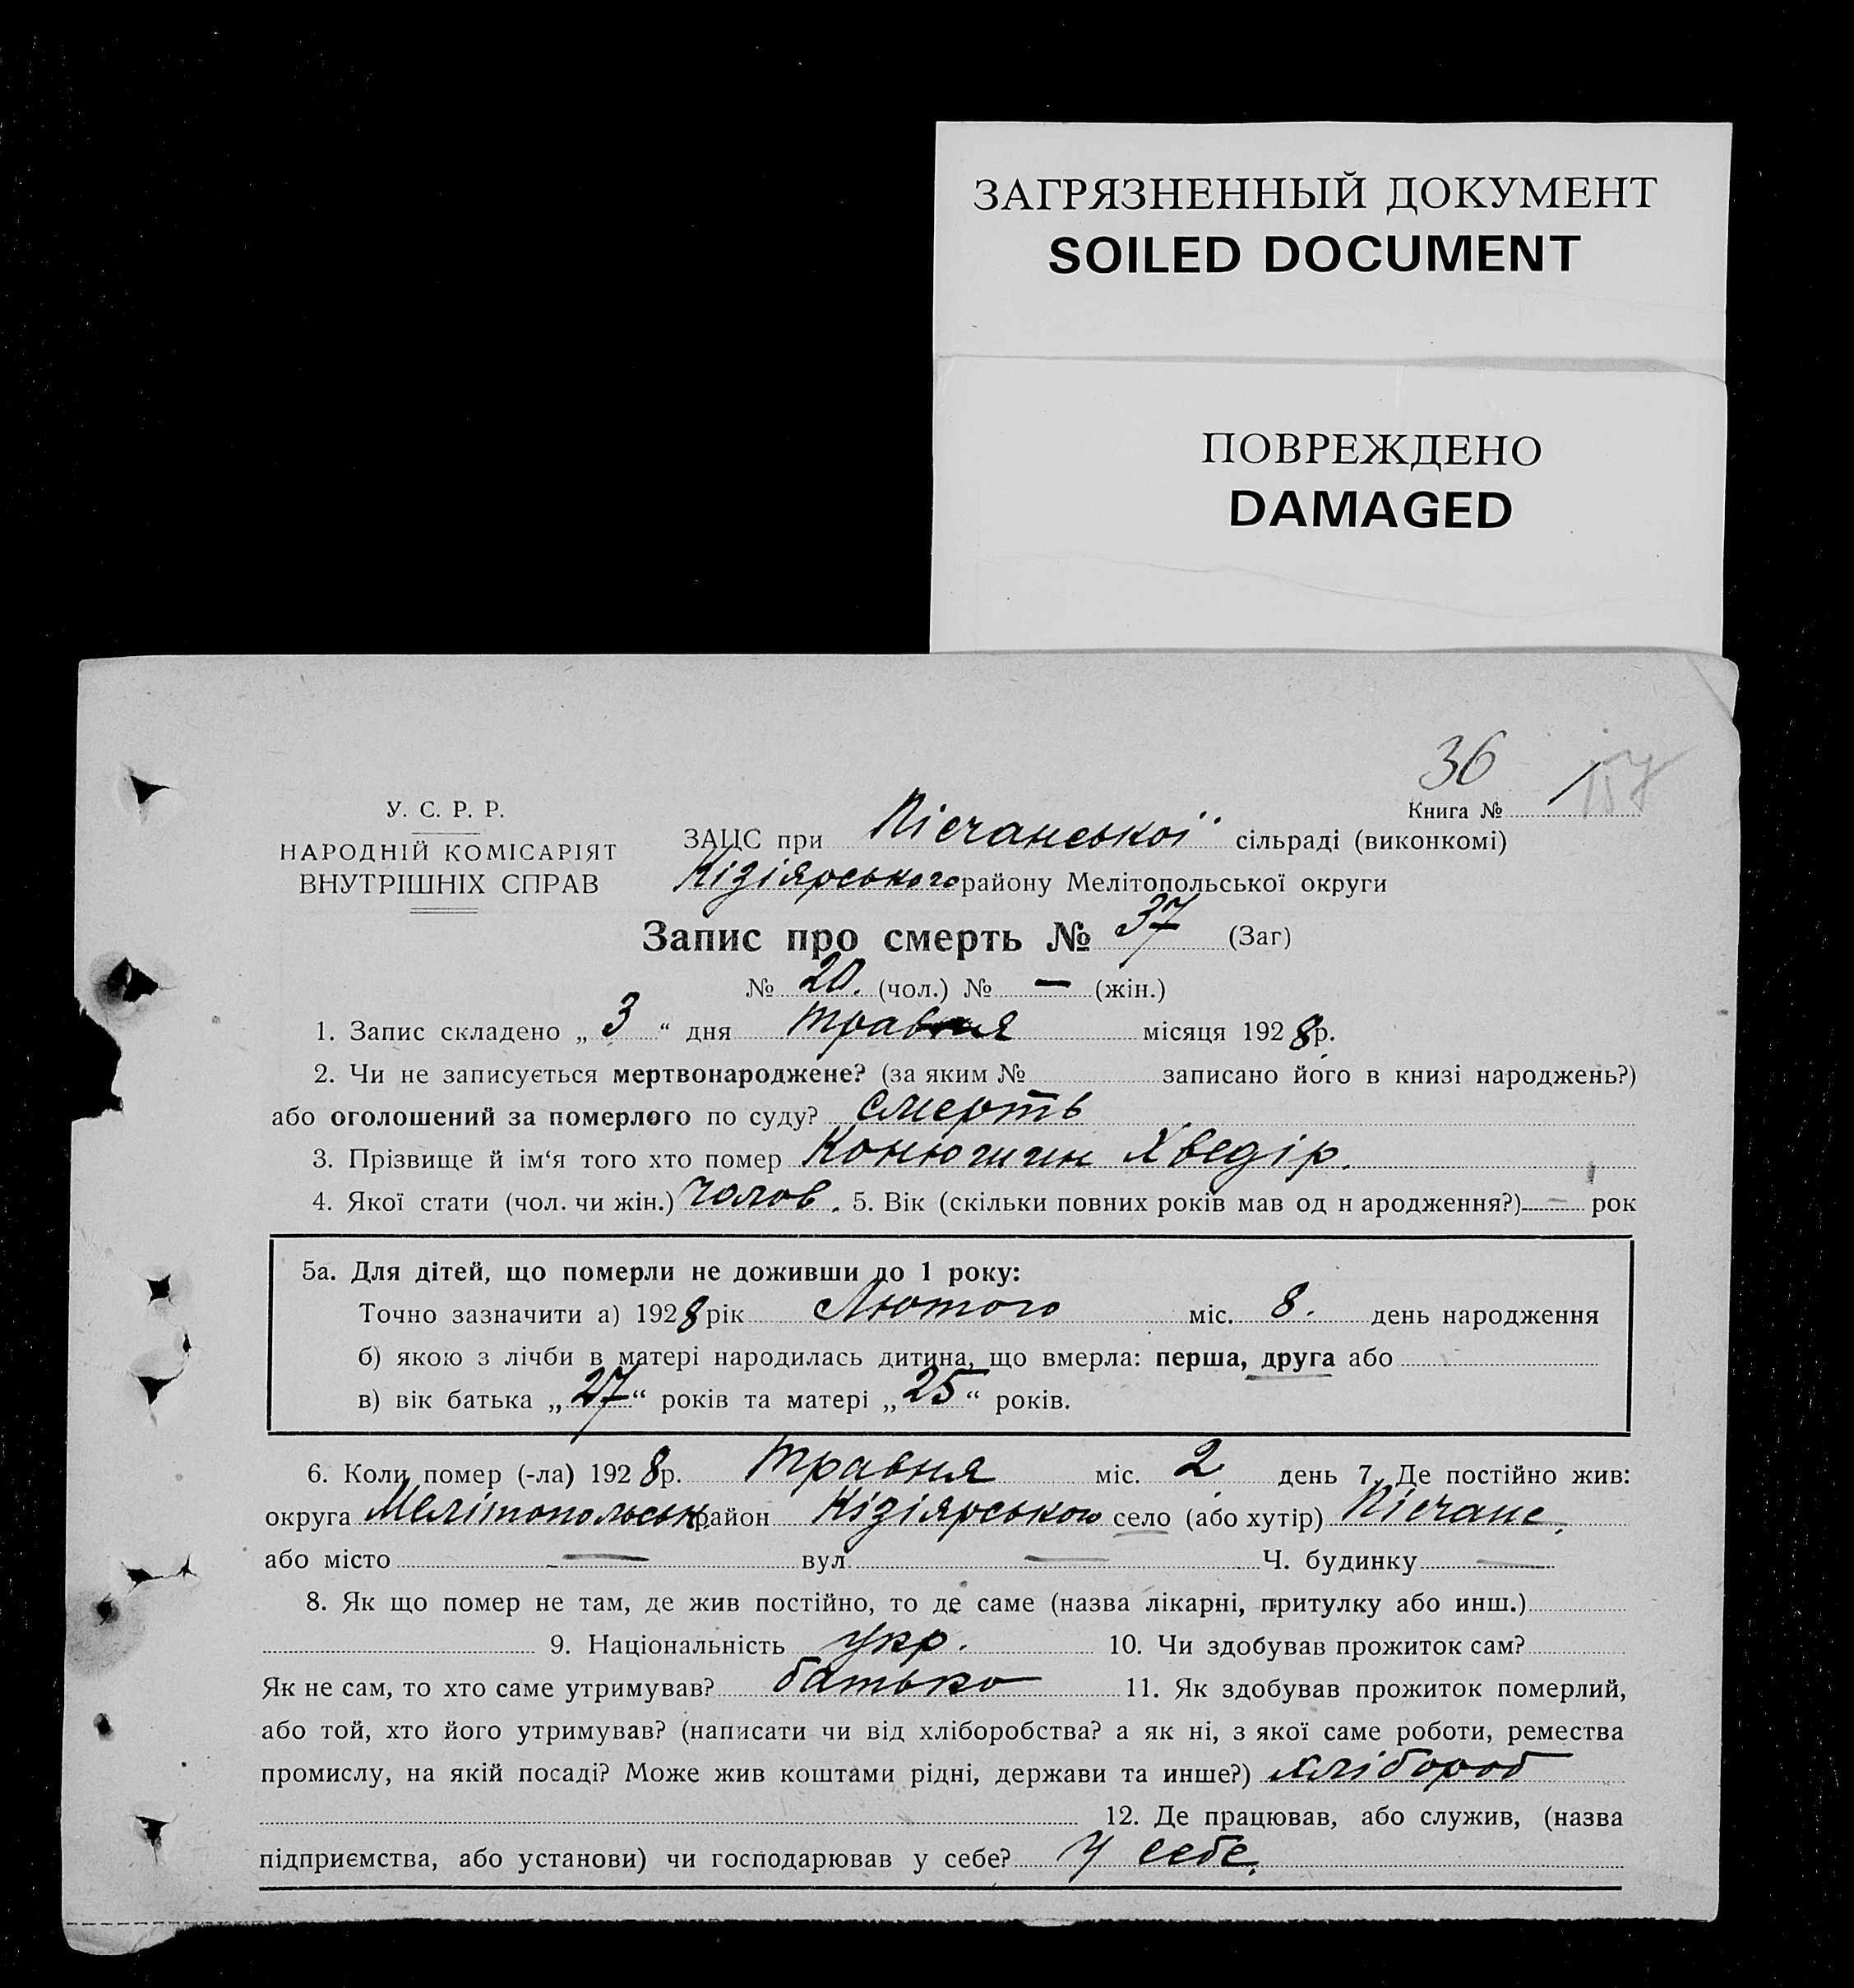 ЗАГРЯЗНЕННЫЙ ДОКУМЕНТ
SOILED DOCUMENT
ПОВРЕЖДЕНО
DAMAGED
36
157
Книга № 1
У. С. Р. Р.
НАРОДНІЙ КОМІСАРІЯТ
ВНУТРІШНІХ СПРАВ
ЗАЦС при Пісчанської сільраді (виконкомі)
Кізіярського району Мелітопольської округи
Запис про смерть № 37 (Заг)
№ 20. (чол.) № — (жін.)
1. Запис складено „ 3 “ дня травня місяця 1928 р.
2. Чи не записується мертвонароджене? (за яким № записано його в книзі народжень?)
або оголошений за померлого по суду? смерть
3. Прізвище й ім‘я того хто помер Хведір.
4. Якої стати (чол. чи жін.) чолов. 5. Вік (скільки повних років мав од н ародження?) — рок
5а. Для дітей, що померли не доживши до 1 року:
Точно зазначити а) 1928 рік Лютого міс. 8. день народження
б) якою з лічби в матері народилась дитина, що вмерла: перша, друга або
в) вік батька „ 27 “ років та матері „ 25 “ років.
6. Коли помер (-ла) 1928 р. травня міс. 2 день 7. Де постійно жив:
округа Мелітопольськ. район Кізіярського село (або хутір) Пісчане.
або місто — вул. — Ч. будинку —
8. Як що помер не там, де жив постійно, то де саме (назва лікарні, притулку або инш.)
9. Національність укр. 10. Чи здобував прожиток сам?
Як не сам, то хто саме утримував? батько 11. Як здобував прожиток померлий,
або той, хто його утримував? (написати чи від хліборобства? а як ні, з якої саме роботи, ремества
промислу, на якій посаді? Може жив коштами рідні, держави та инше?) хлібороб
12. Де працював, або служив, (назва
підприємства, або установи) чи господарював у себе? У себе.